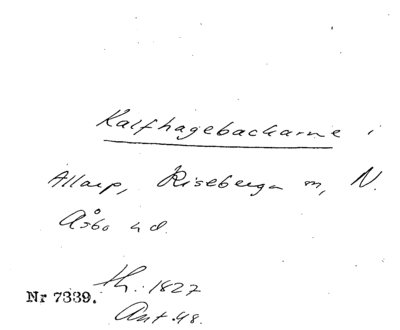 Kalfhagebackarne i
Allarp, Riseberga sn, N.
Åsbo hd.
Nr 7339.
th. 1827
Ant. 48.